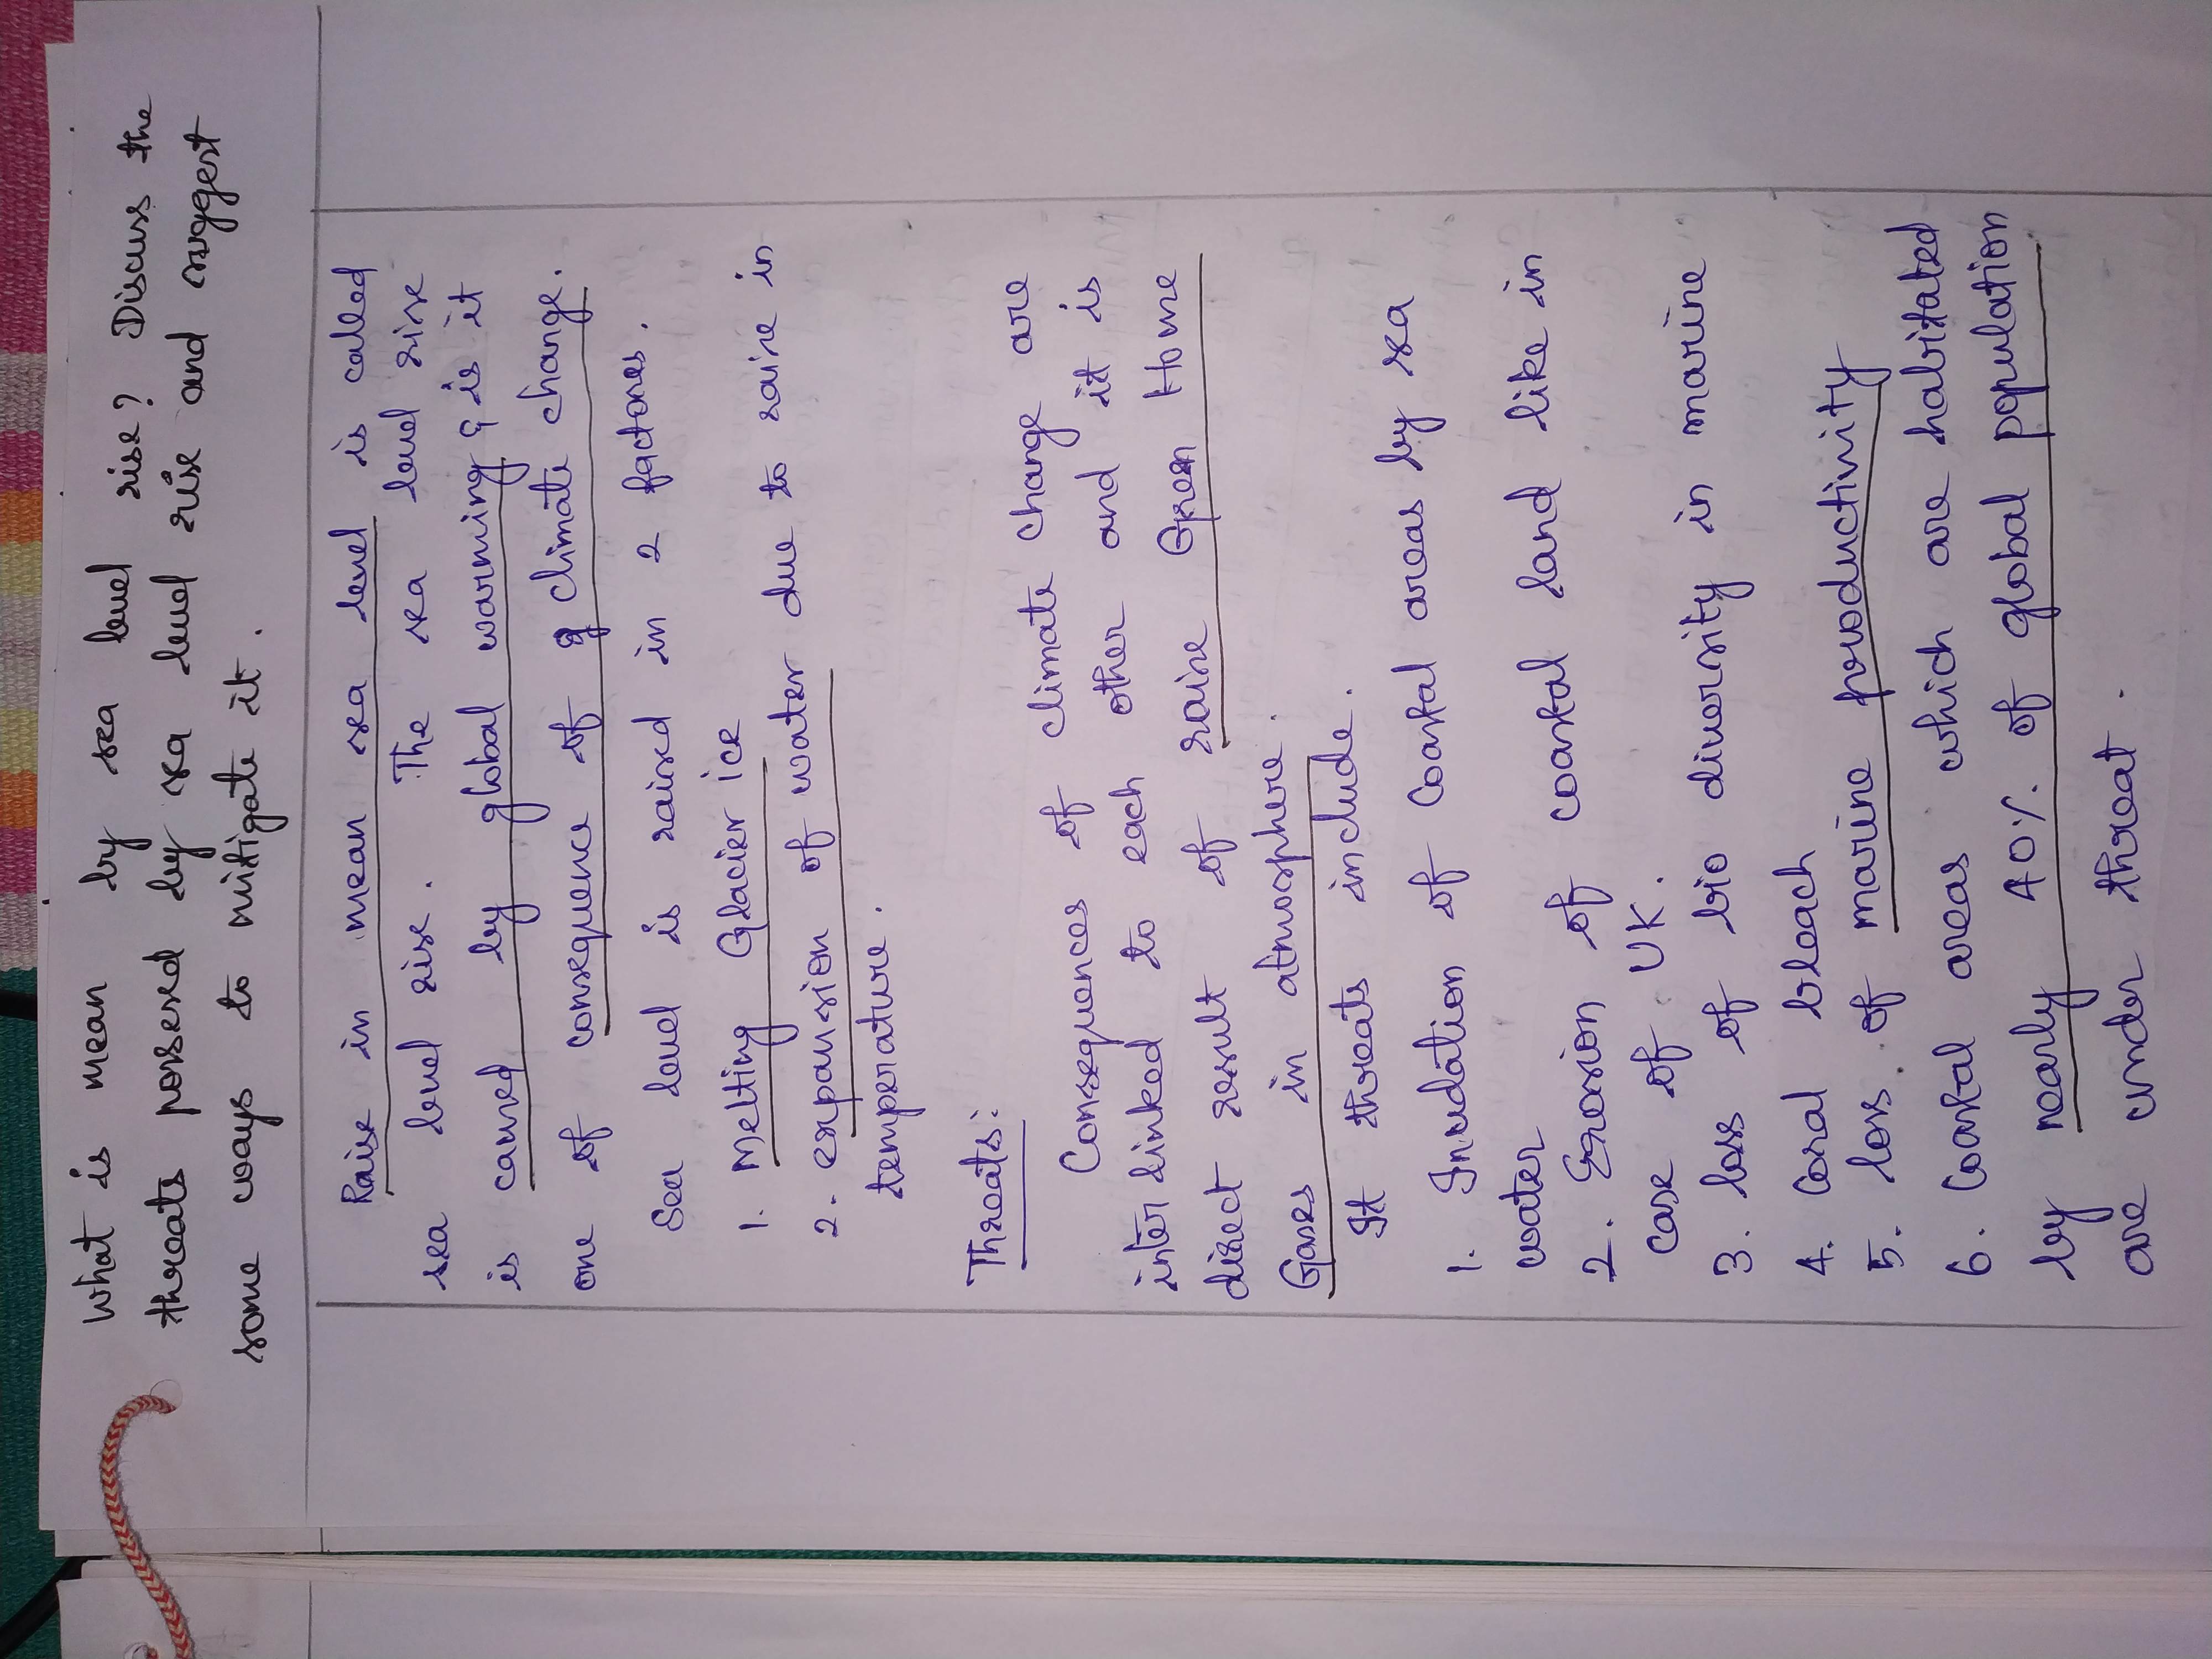 What is mean by sea level rise? Discuss the
threats possesed by sea level rise and suggest
some ways to mitigate it.
Raise in mean sea level is called
sea level rise. The sea level rise
is caused by global warming & is it
one of consequence of climate change.
Sea level is raised in 2 factores.
1. Melting Glacier ice
2. expansion of water due to raise in
temperature.
Threats:
Consequences of climate change are
inter linked to each other and it is
direct result of raise Green House
Gases in atmosphere.
It threats include.
1. Inudation of Coastal areas by sea
water
2. Erosion of coastal land like in
case of UK.
3. loss of bio diversity in marine
4. Coral bleach
5. loss of marine productivity
6. Coastal areas which are habitated
by nearly 40% of global population
are under threat.